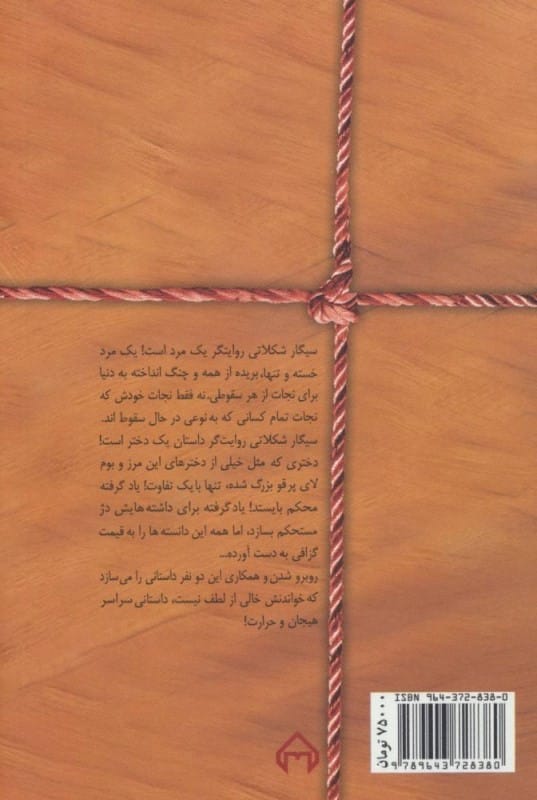 سیگار شکلاتی روایتگر یک مرد است! یک مرد
خسته و تنها، بریده از همه و چنگ انداخته به دنیا
برای نجات از هر سقوطی. نه فقط نجات خودش که
نجات تمام کسانی که به نوعی در حال سقوط اند.
سیگار شکلاتی روایت‌گر داستان یک دختر است!
دختری که مثل خیلی از دخترهای این مرز و بوم
لای پر قو بزرگ شده، تنها با یک تفاوت! یاد گرفته
محکم بایستد! یاد گرفته برای داشته هایش دژ
مستحکم بسازد، اما همه این دانسته ها را به قیمت
گزافی به دست آورده...
روبرو شدن و همکاری این دو نفر داستانی را می‌سازد
که خواندنش خالی از لطف نیست، داستانی سراسر
هیجان و حرارت!
ISBN 964-372-838-0
9 789643 728380
۷۵۰۰۰ تومان